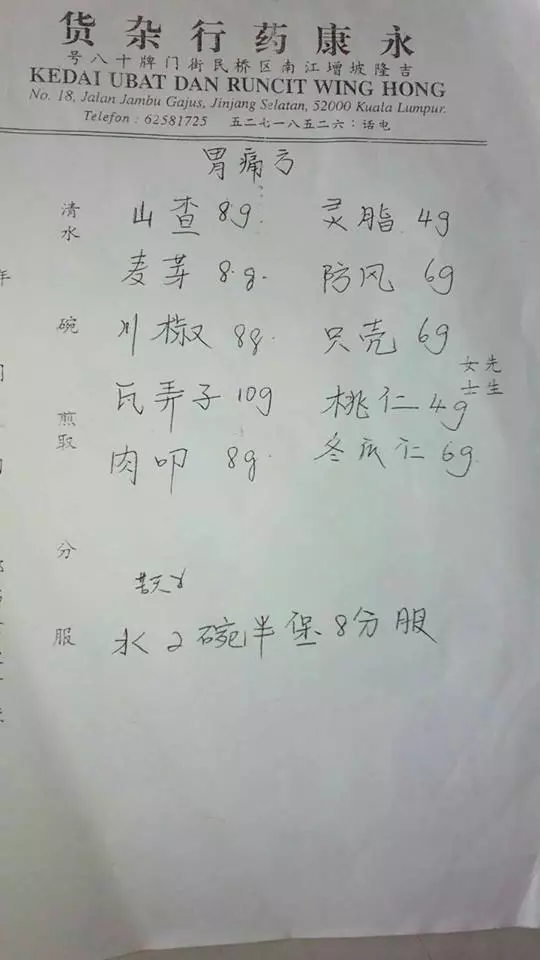 永康药行杂货
吉隆坡增江南区桥民街门牌十八号
KEDAI UBAT DAN RUNCIT WING HONG
No. 18, Jalan Jambu Gajus, Jinjang Selatan, 52000 Kuala Lumpur.
Telefon : 62581725 电话：六二五八一七二五
胃痛方
先生
女士
清水 碗 煎取 分 服
山查 8g. 灵脂 4g
麦芽 8.g. 防风 6g
川椒 8g. 只壳 6g
瓦弄子 10g 桃仁 4g
肉叩 8g. 冬瓜仁 6g.
水2碗半煲8分服